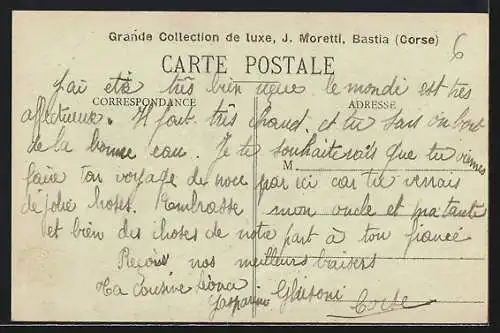 Grande Collection de luxe, J. Moretti, Bastia (Corse)
6
CARTE POSTALE
J'ai été très bien reçue le mondi est très
CORRESPONDANCE
ADRESSE
affectueux. Il fait très chaud et tu sais on boit
de la bonne eau. Je te souhaiterais que tu viennes
M
faire ton voyage de noce par ici car tu verrais
de jolie choses. Embrasse mon oncle et ma tante
et bien des choses de notre part à ton fiancé
Reçois nos meilleurs baisers
Ta cousine
Ghisoni
Corse